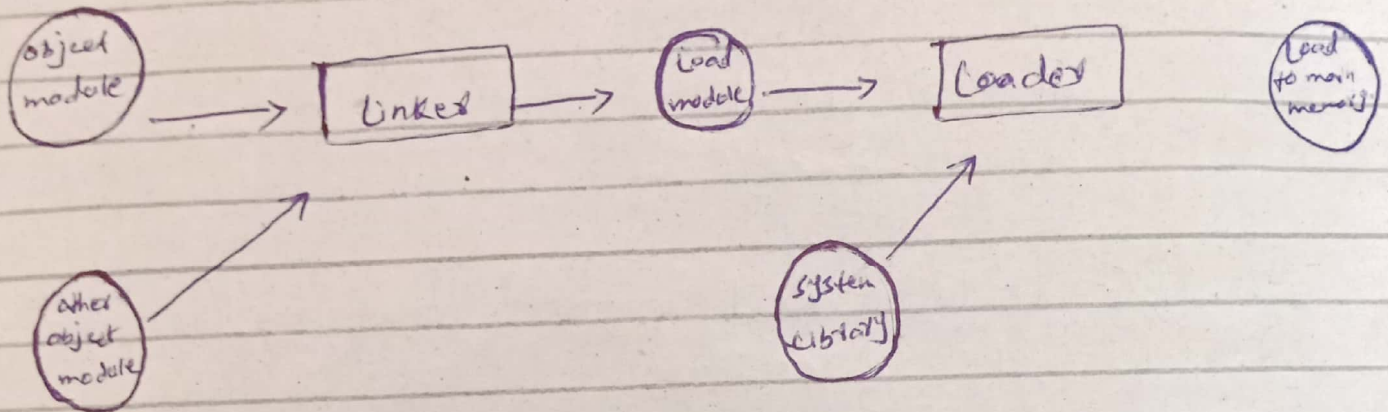 object
module
Linker
Load
module
Loader
Load
to main
memory
other
object
module
system
Library